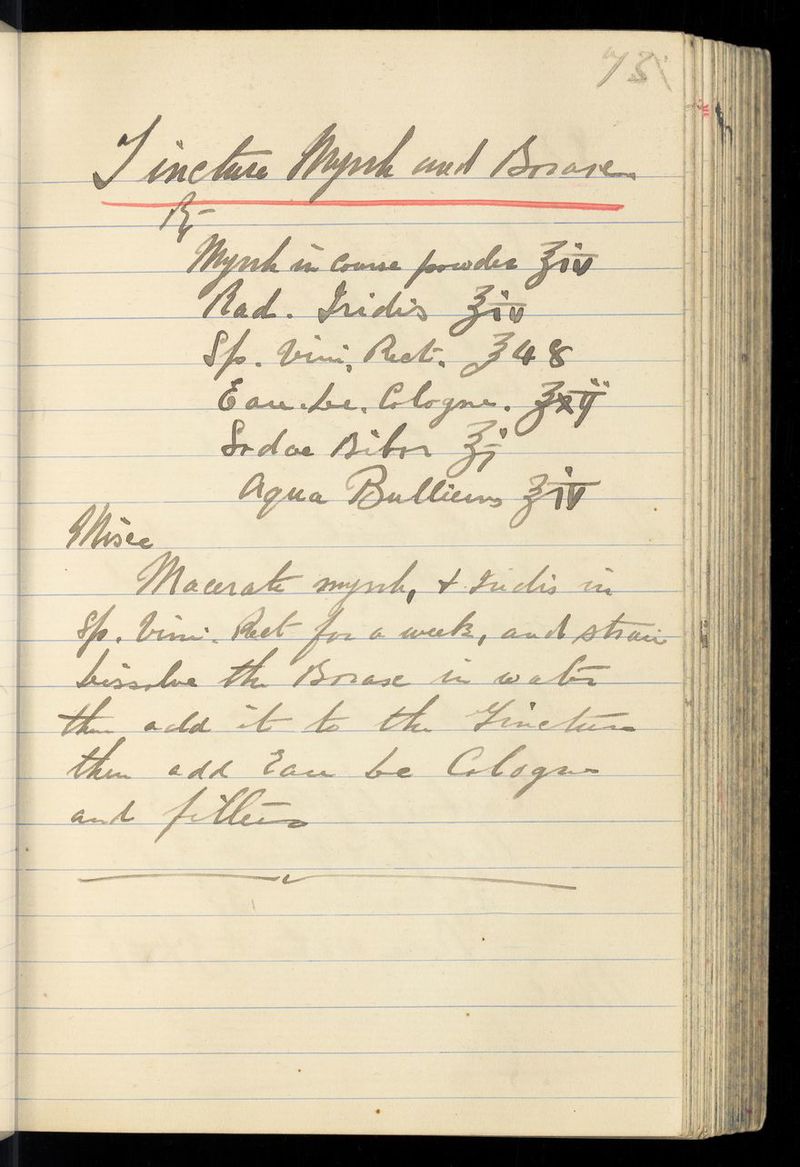 73
Tincture Myrrh and Borase
℞
Myrrh in course powder ℥iv
Rad. Iridis ℥iv
Sp. Vini. Rect. ℥48
Eau. de. Cologne. ℥xij
Sodae Bibor ℥j
Aqua Bulliens ℥iv
Misce
Macerate myrrh, & Iridis in
Sp. Vini. Rect for a week, and strain
Dissolve the Borase in water
then add it to the Tincture
then add Eau de Cologne
and filter